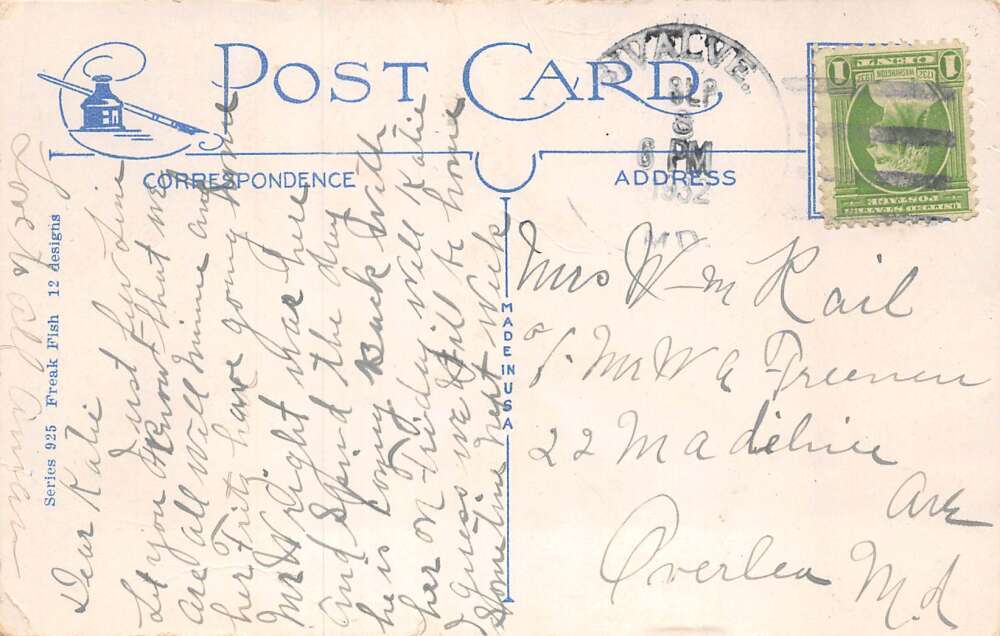 POST CARD
CORRESPONDENCE
ADDRESS
VALVE
SEP
6
6 PM
1932
MD.
1 CENT 1
MADE IN USA
Series 925 Freak Fish 12 designs
Dear Katie
Just few line
Let you Know that we
are all well Minnie and
her Fritz have gony home
Mr Wright was here
and Spind the day
he is comy back with
her on Friday well Katie
I Guess we Will be home
Some time next week
Love to All
Mrs Wm Rail
c/o Mr W G Freenen
22 Madeline
Ave
Overlea Md